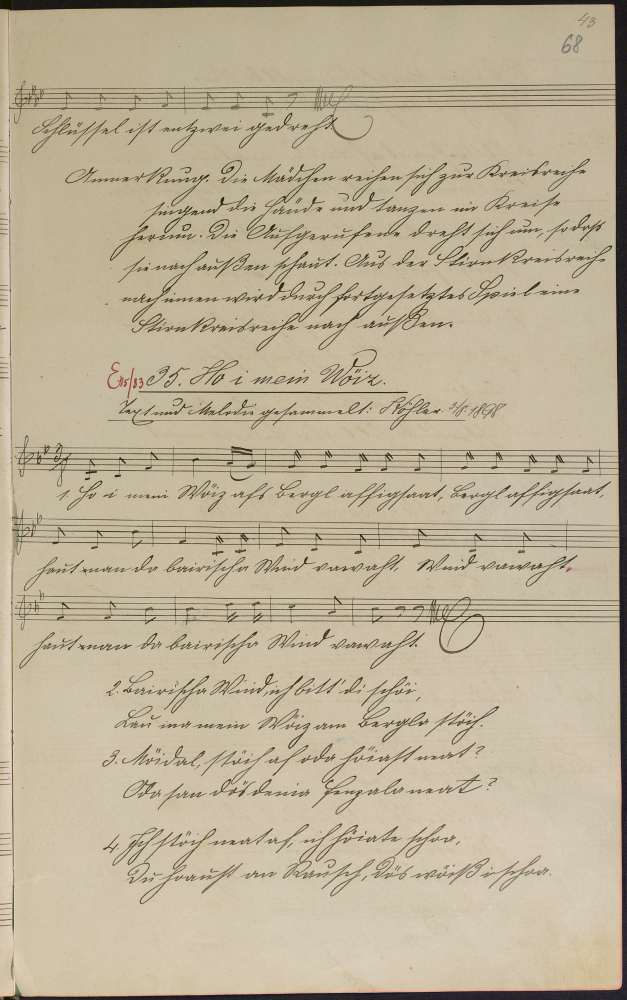 43
68
Schlüssel ist entzwei gedreht.
Anmerkung. Die Mädchen reihen sich zur Kreisreihe
singend die Hände und tanzen im Kreise
herum. Die Aufgerufene dreht sich um, sodaß
sie nach außen schaut. Aus der Stirnkreisreihe
nach innen wird durch fortgesetztes Spiel eine
Stirnkreisreihe nach außen.
E115/83 35. Ho i mein Wöiz.
Text und Melodie gesammelt: Köhler 1898
1. Ho i mein Wöiz afs Bergl affigsaat, Bergl affigsaat,
haut man da bairischa Wind vawaht, Wind vawaht,
haut man da bairischa Wind vawaht.
2. Bairischa Wind, ich bitt' di schöi,
Lau ma mein Wöiz am Bergla stöih.
3. Moidal, stöih af oda höiast neat?
Oda san dös denia Fenzala neat?
4 Ich stöih neat af, ich höiate schoa,
Du hraust an Rausch, dös wöiß i schoa.